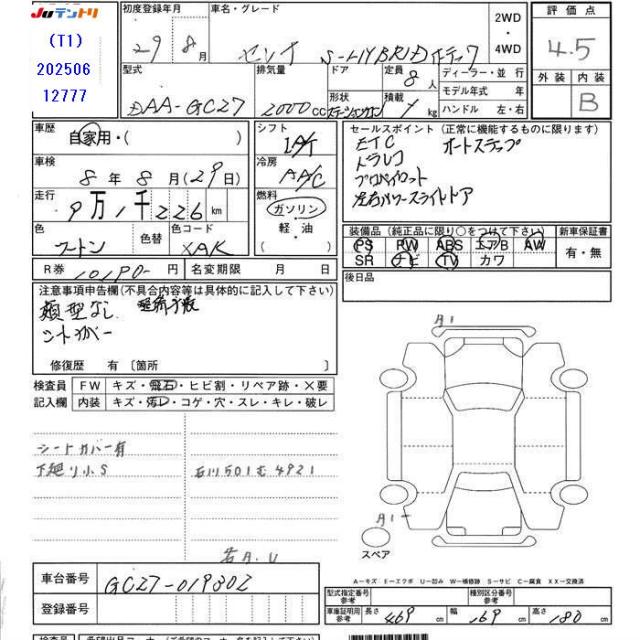 JUテントリ
(T1)
202506
12777
初度登録年月 車名・グレード
29年8月 セレナ S-HYBRID
2WD・4WD
評価点
4.5
外装 内装
B
型式 排気量 ドア 定員 ディーラー・並行
DAA-GC27 2000CC 8人
形状 ステーションワゴン 積載 kg
モデル年式 年
ハンドル 左・右
車歴 自家用・( )
シフト
IAT
セールスポイント (正常に機能するものに限ります)
ETC オートステップ
ドラレコ
プロパイロット
左右パワースライドドア
車検 8年8月(29日)
冷房
AAC
走行 9万1千226km
燃料 ガソリン・軽油 ( )
色 色替 色コード
ツートン XAK
装備品 (純正品に限り○をつけて下さい) 新車保証書
PS PW ABS エアB AW
SR ナビ TV カワ
有・無
R券 10190-円 名変期限 月 日
後日品
注意事項申告欄(不具合内容等は具体的に記入して下さい)
類型なし
シートカバー
修復歴 有〔箇所 〕
検査員記入欄
FW キズ・飛石・ヒビ割・リペア跡・×要
内装 キズ・汚レ・コゲ・穴・スレ・キレ・破レ
シートカバー有
下廻り小S 石川501む4921
若A.U
A1
A1
スペア
A-キズ E-エクボ U-凹み W-補修跡 S-サビ C-腐食 XX-交換済
車台番号 GC27-019302
登録番号
型式指定番号 参考 種別区分番号 参考
車庫証明用 参考 長さ 469cm 幅 169cm 高さ 180cm